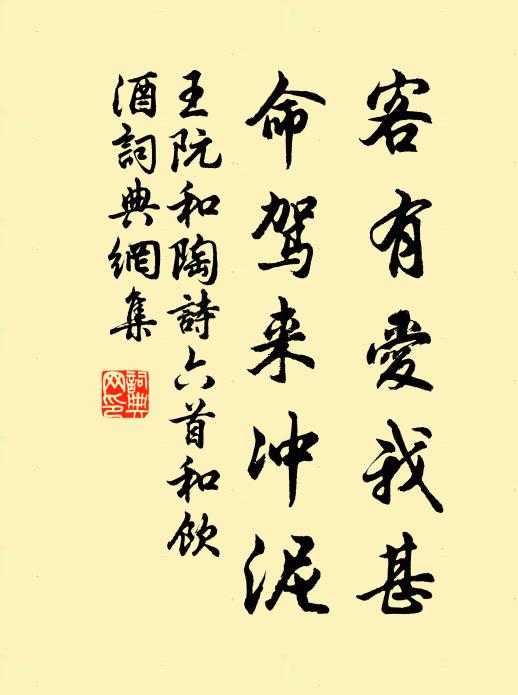 客有愛我甚
命駕来冲泥
王阮和陶詩六首和飲
酒詞典網集
詞典
网印